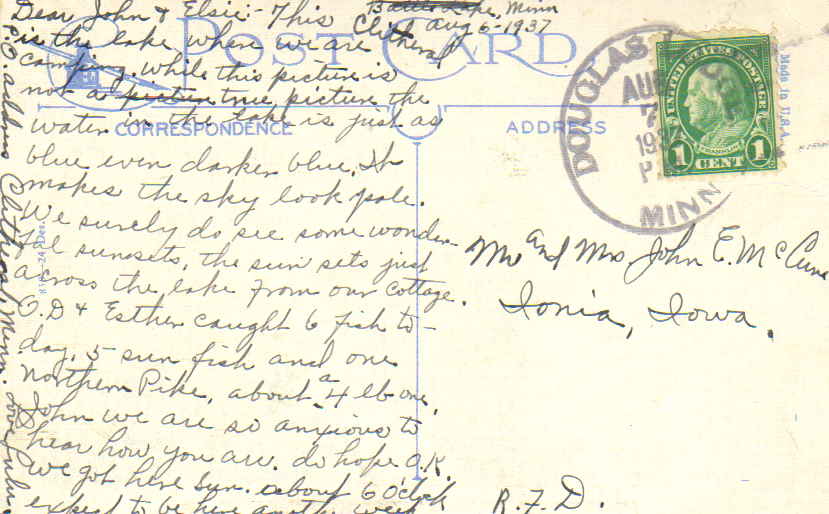 Battle Lake, Minn
Clitheral Aug 6-1937
Dear John & Elsie:- This
is the lake where we are
camping. While this picture is
not a picture true picture the
water in the lake is just as
blue even darker blue. It
makes the sky look pale.
We surely do see some wonder-
ful sunsets, the sun sets just
across the lake from our cottage.
O.D & Esther caught 6 fish to-
day, 5 sun fish and one
Northern Pike, about a 4 lb one.
John we are so anxious to
hear how you are. do hope O.K.
We got here Sun. about 6 o'clock
expect to be here another week
P.O address Clitheral, Minn. Love Lulu.
POST CARD
CORRESPONDENCE
ADDRESS
DOUGLAS
AUG
7
1937
P
MINN
UNITED STATES POSTAGE
FRANKLIN
1 CENT 1
Made In U.S.A.
Mr and Mrs John E. McCune
Ionia, Iowa.
R.F.D.